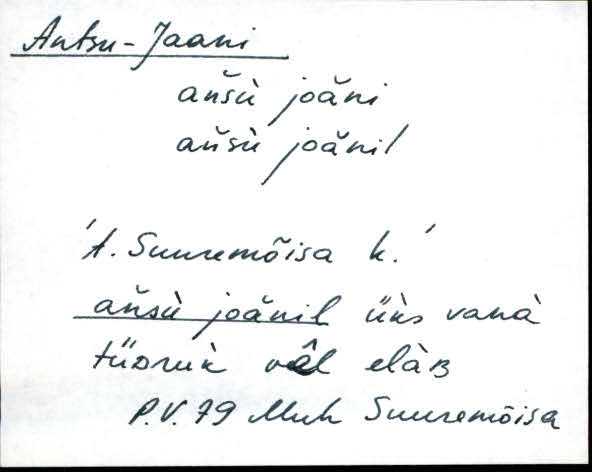 Antsu-Jaani
an̆sù joăni
an̆sù joănil
't. Suuremõisa k.'
an̆sù joănil ük̀s vanà
tüᴅruk̀ vêl elàʙ
P.V. 79 Muh Suuremõisa